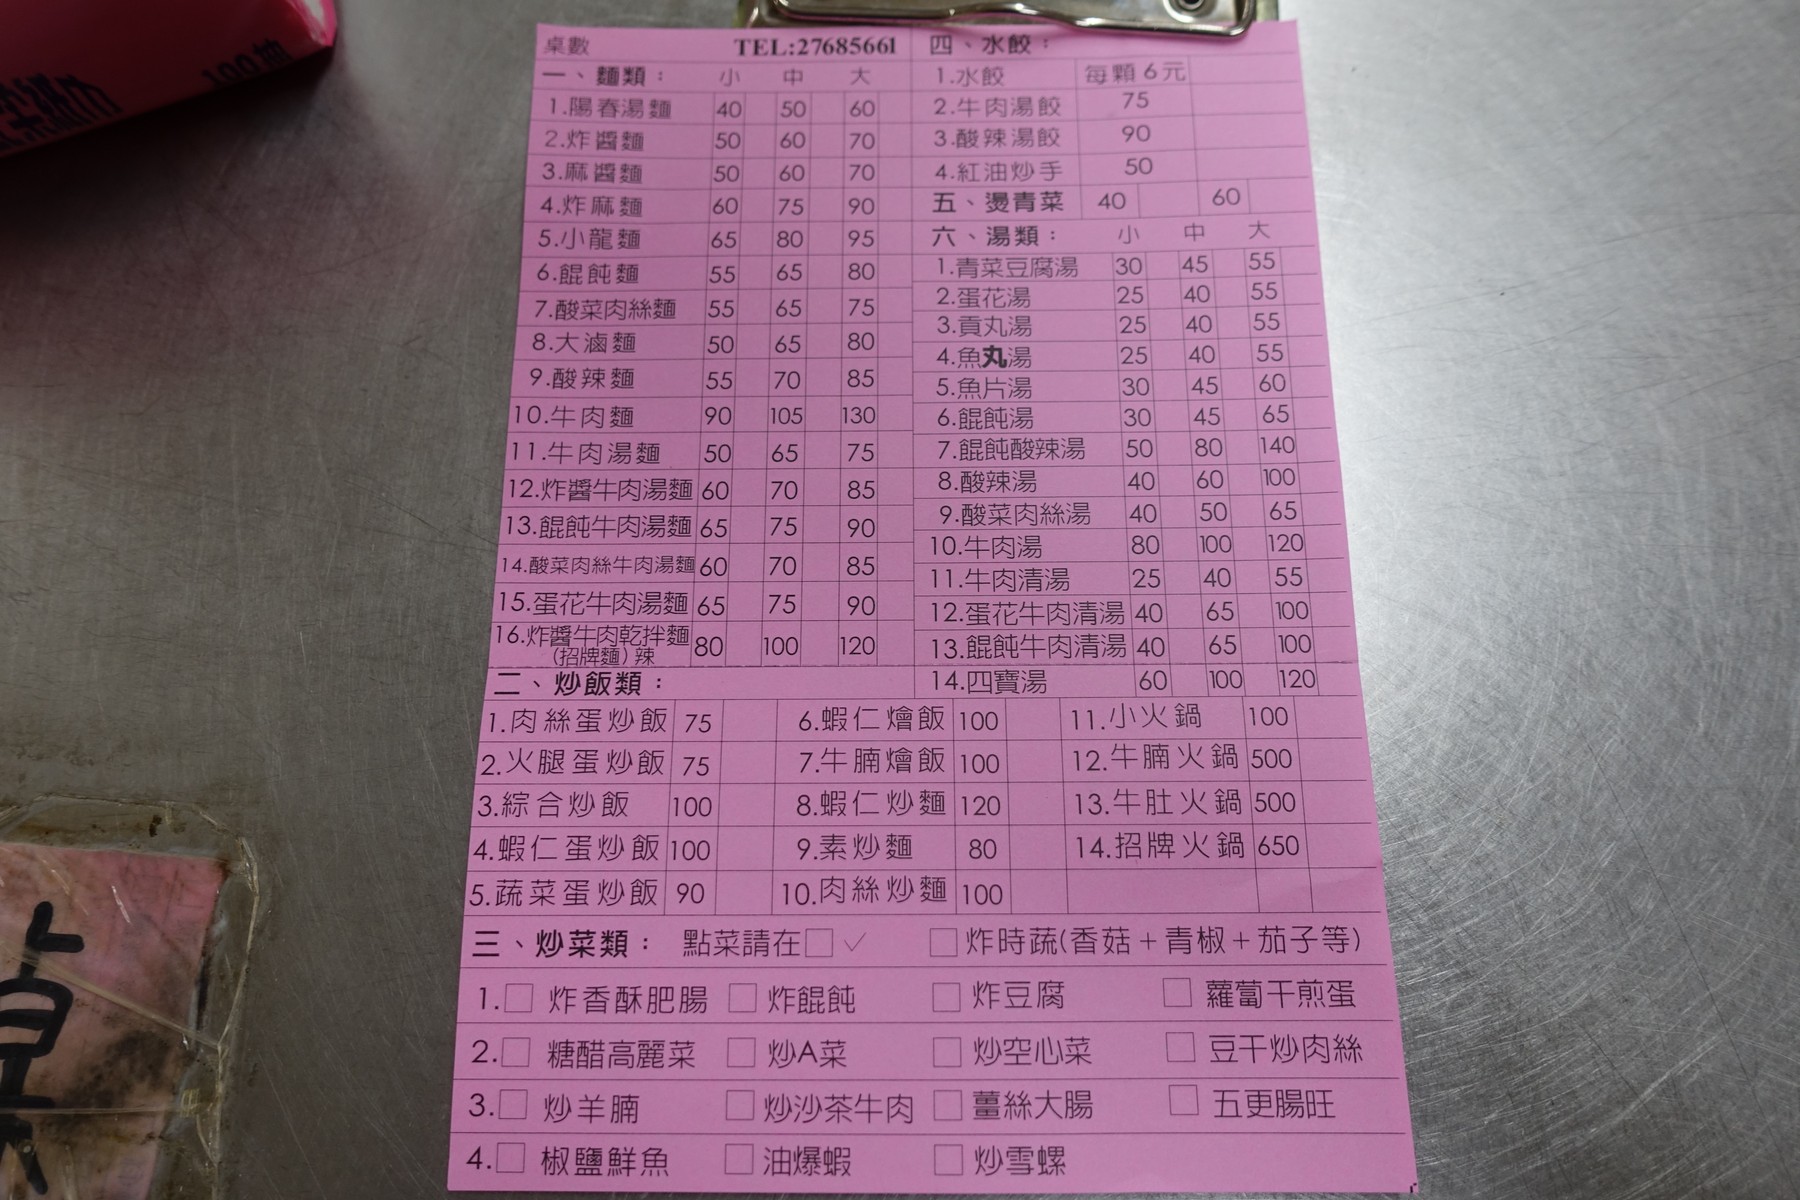 100抽
桌數 TEL:27685661
一、麵類： 小 中 大
1.陽春湯麵 40 50 60
2.炸醬麵 50 60 70
3.麻醬麵 50 60 70
4.炸麻麵 60 75 90
5.小龍麵 65 80 95
6.餛飩麵 55 65 80
7.酸菜肉絲麵 55 65 75
8.大滷麵 50 65 80
9.酸辣麵 55 70 85
10.牛肉麵 90 105 130
11.牛肉湯麵 50 65 75
12.炸醬牛肉湯麵 60 70 85
13.餛飩牛肉湯麵 65 75 90
14.酸菜肉絲牛肉湯麵 60 70 85
15.蛋花牛肉湯麵 65 75 90
16.炸醬牛肉乾拌麵 80 100 120
(招牌麵)辣
四、水餃：
1.水餃 每顆6元
2.牛肉湯餃 75
3.酸辣湯餃 90
4.紅油炒手 50
五、燙青菜 40 60
六、湯類： 小 中 大
1.青菜豆腐湯 30 45 55
2.蛋花湯 25 40 55
3.貢丸湯 25 40 55
4.魚丸湯 25 40 55
5.魚片湯 30 45 60
6.餛飩湯 30 45 65
7.餛飩酸辣湯 50 80 140
8.酸辣湯 40 60 100
9.酸菜肉絲湯 40 50 65
10.牛肉湯 80 100 120
11.牛肉清湯 25 40 55
12.蛋花牛肉清湯 40 65 100
13.餛飩牛肉清湯 40 65 100
14.四寶湯 60 100 120
二、炒飯類：
1.肉絲蛋炒飯 75 6.蝦仁燴飯 100 11.小火鍋 100
2.火腿蛋炒飯 75 7.牛腩燴飯 100 12.牛腩火鍋 500
3.綜合炒飯 100 8.蝦仁炒麵 120 13.牛肚火鍋 500
4.蝦仁蛋炒飯 100 9.素炒麵 80 14.招牌火鍋 650
5.蔬菜蛋炒飯 90 10.肉絲炒麵 100
三、炒菜類： 點菜請在□✓ □炸時蔬(香菇+青椒+茄子等)
1.□ 炸香酥肥腸 □ 炸餛飩 □ 炸豆腐 □ 蘿蔔干煎蛋
2.□ 糖醋高麗菜 □ 炒A菜 □ 炒空心菜 □ 豆干炒肉絲
3.□ 炒羊腩 □ 炒沙茶牛肉 □ 薑絲大腸 □ 五更腸旺
4.□ 椒鹽鮮魚 □ 油爆蝦 □ 炒雪螺